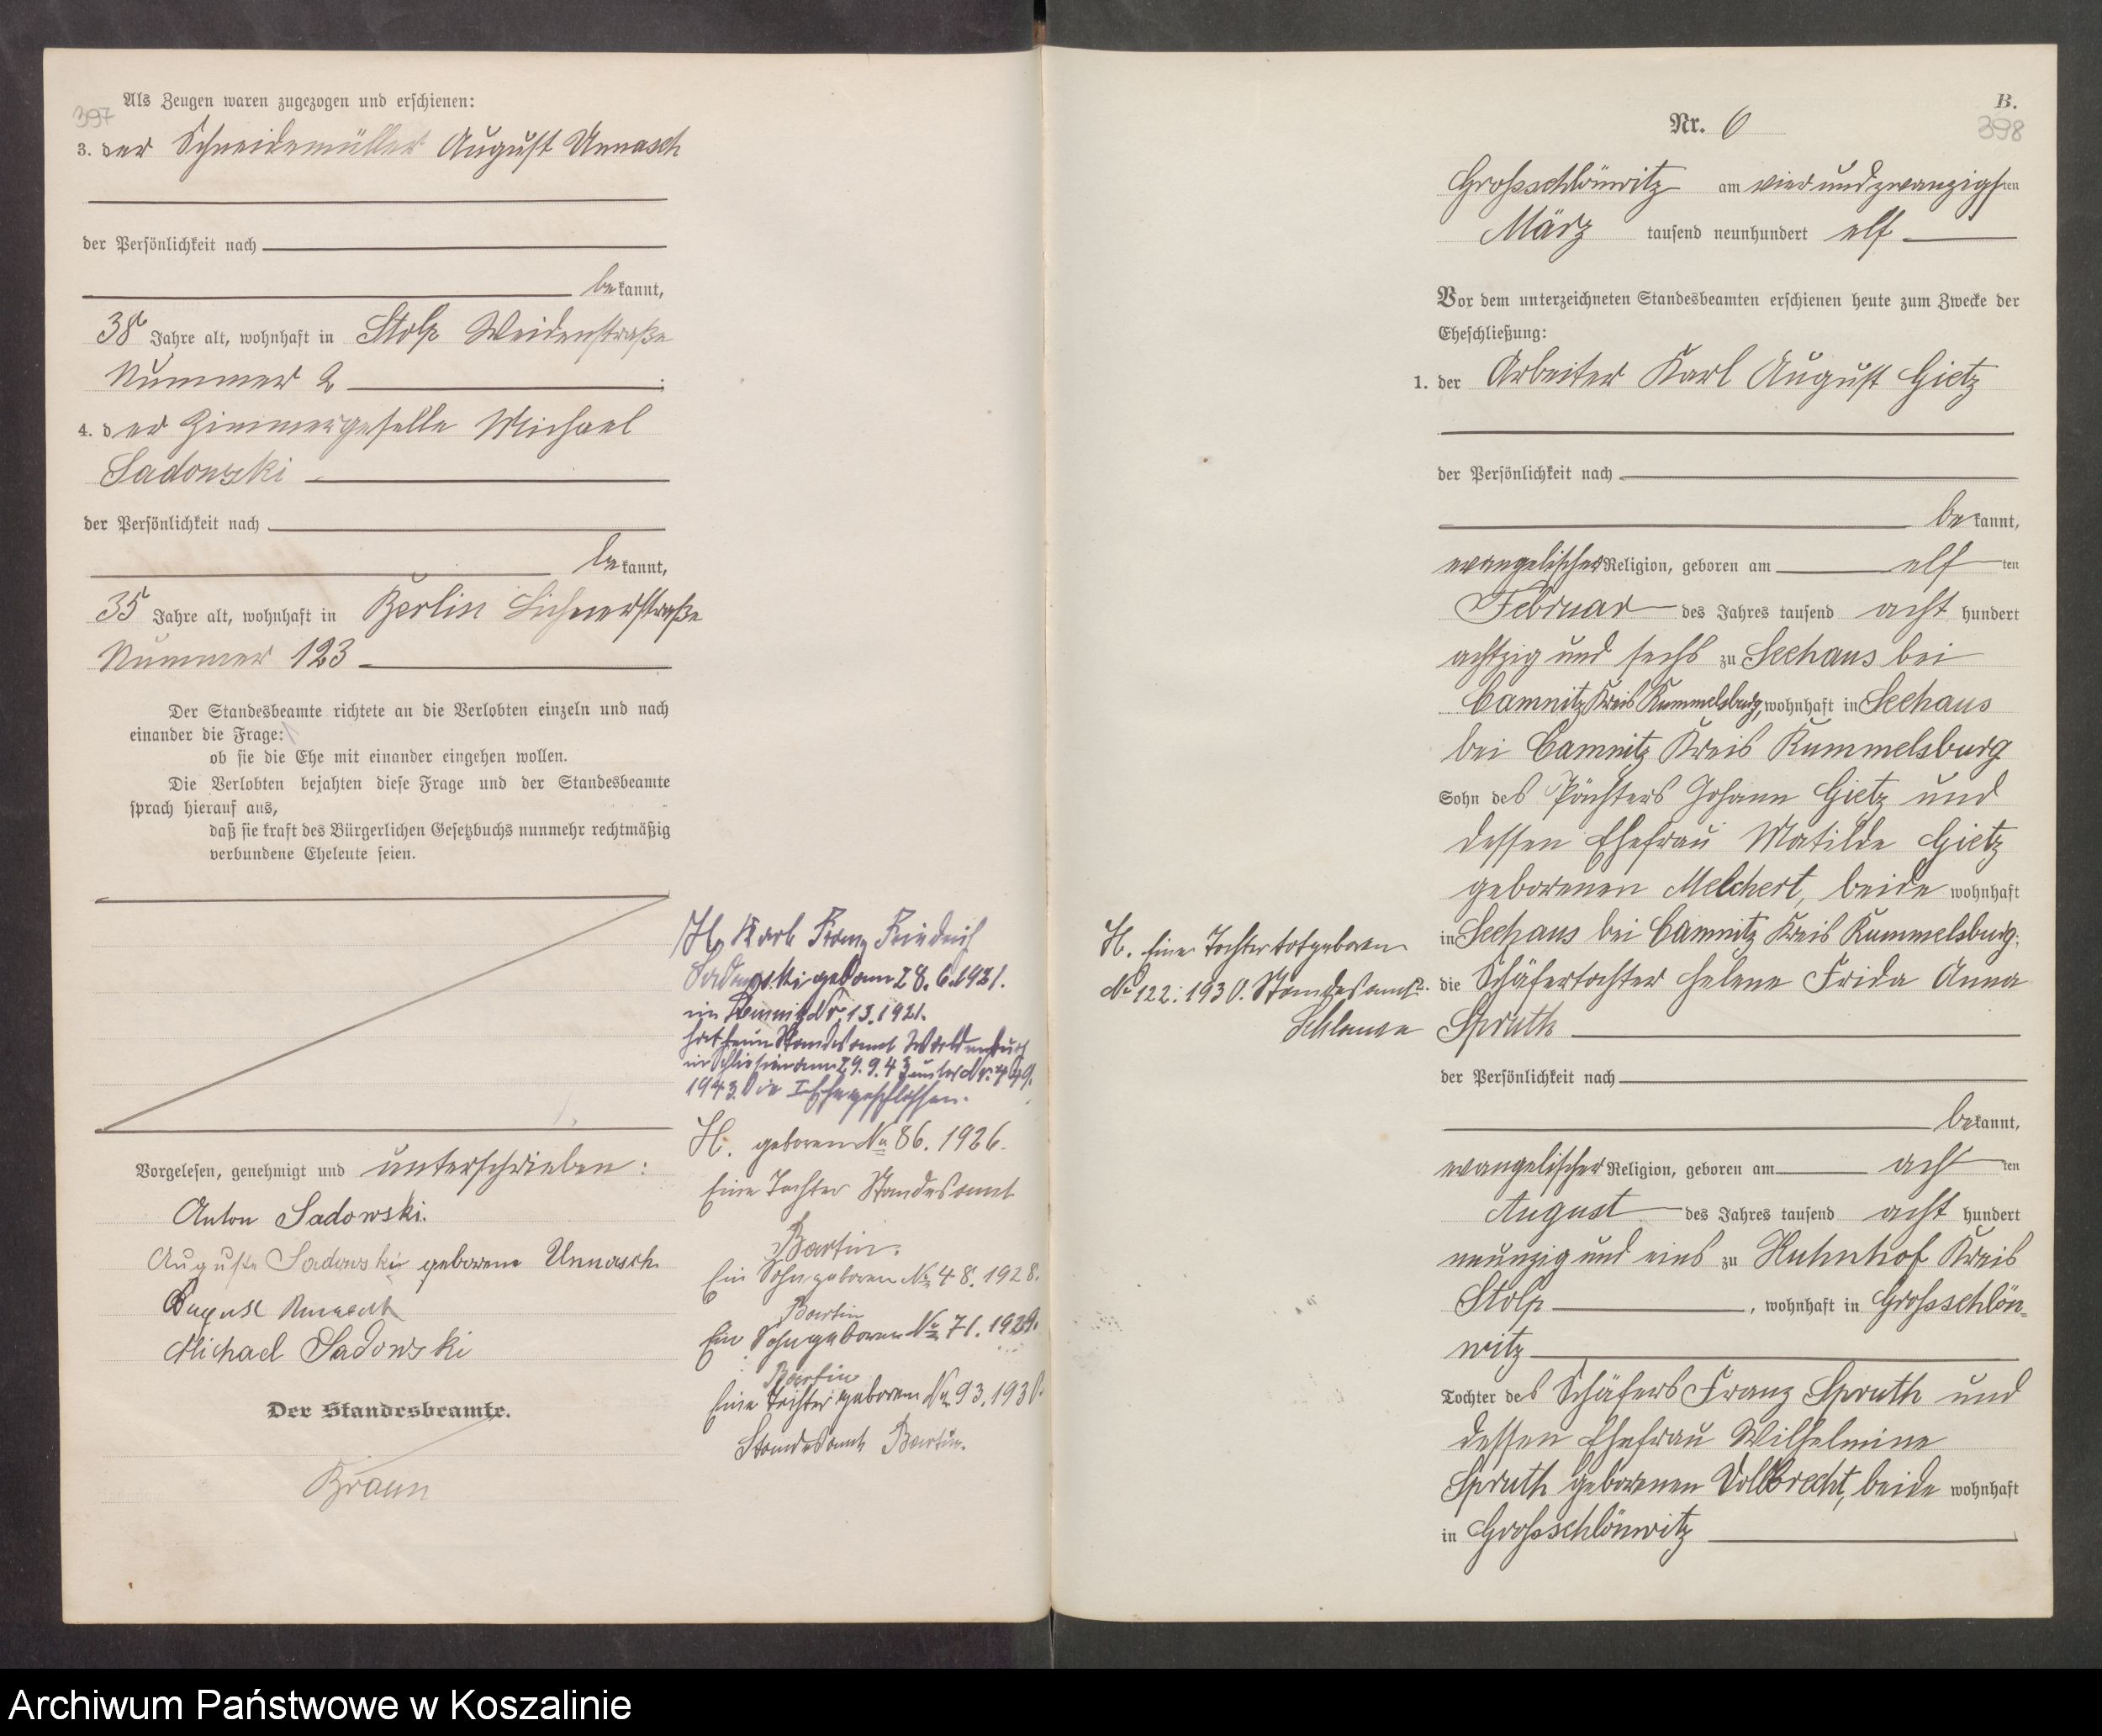 397
Als Zeugen waren zugezogen und erschienen:
3. der Schneidemüller August Unnasch
der Persönlichkeit nach
bekannt,
38 Jahre alt, wohnhaft in Stolp Weidenstraße
Nummer 2 ;
4. der Zimmergeselle Michael
Sadowski
der Persönlichkeit nach
bekannt,
35 Jahre alt, wohnhaft in Berlin
Nummer 123
Der Standesbeamte richtete an die Verlobten einzeln und nach
einander die Frage:
ob sie die Ehe mit einander eingehen wollen.
Die Verlobten bejahten diese Frage und der Standesbeamte
sprach hierauf aus,
daß sie kraft des Bürgerlichen Gesetzbuchs nunmehr rechtmäßig
verbundene Eheleute seien.
Vorgelesen, genehmigt und unterschrieben:
Anton Sadowski.
Auguste Sadowski geborene Unnasch.
August
Michael Sadowski
Der Standesbeamte.
Braun
H. Karl Franz Friedrich
Sadowski geb am 28. 6. 1921.
in Nr. 13. 1921.
hat beim Standesamt
in Schlesien am 29. 9. 43 unter Nr. 449.
1943 die I Ehe geschlossen.
H. geboren No 86. 1926.
Eine Tochter Standesamt
Bartin.
Ein Sohn geboren No 48. 1928.
Bartin
Ein Sohn geboren No 71. 1929.
Bartin
Eine Tochter geboren No 93. 1930.
Standesamt Bartin.
B.
398
Nr. 6
Grossschlönwitz am vierundzwanzigsten
März tausend neunhundert elf
Vor dem unterzeichneten Standesbeamten erschienen heute zum Zwecke der
Eheschließung:
1. der Arbeiter Karl August Gietz
der Persönlichkeit nach
bekannt,
evangelischer Religion, geboren am elften
Februar des Jahres tausend acht hundert
achtzig und sechs zu Seehaus bei
Camnitz Kreis Rummelsburg, wohnhaft in Seehaus
bei Camnitz Kreis Rummelsburg
Sohn des Pächters Johann Gietz und
dessen Ehefrau Matilde Gietz
geborenen Melchert, beide wohnhaft
in Seehaus bei Camnitz Kreis Rummelsburg;
2. die Schäfertochter Helene Frida Anna
Spruth
der Persönlichkeit nach
bekannt,
evangelischer Religion, geboren am achten
August des Jahres tausend acht hundert
neunzig und eins zu Kuhnhof Kreis
Stolp, wohnhaft in Grossschlön-
witz
Tochter des Schäfers Franz Spruth und
dessen Ehefrau Wilhelmine
Spruth geborenen Vollbrecht, beide wohnhaft
in Grossschlönwitz
H. Eine Tochter totgeboren
No 122. 1930. Standesamt
Schlawe
Archiwum Państwowe w Koszalinie